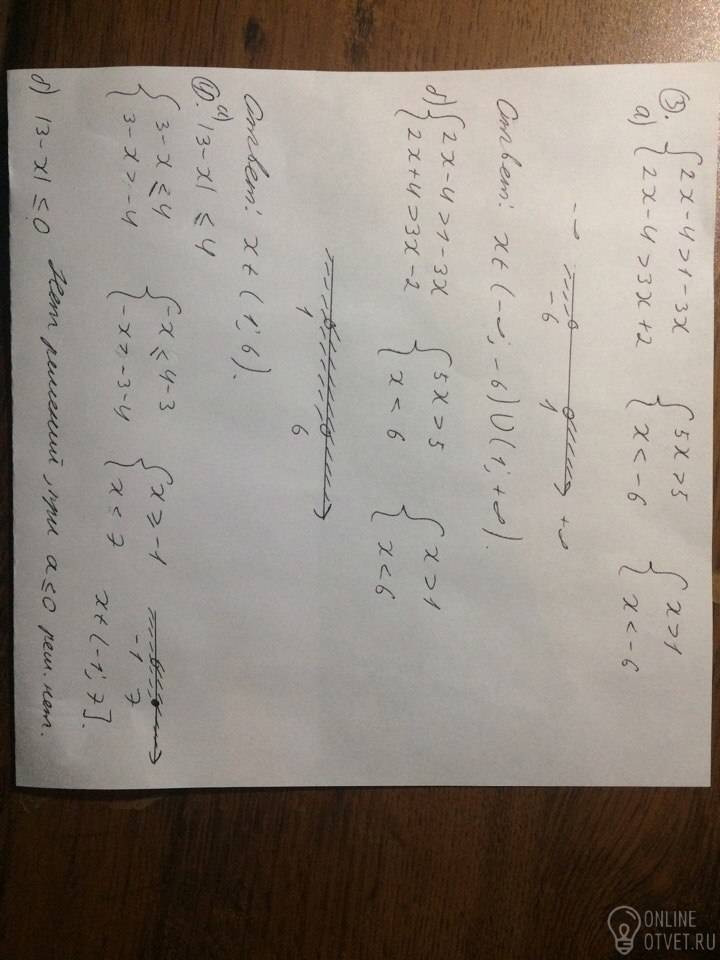 ③.
а) { 2x-4>1-3x { 5x>5 { x>1
{ 2x-4>3x+2 { x<-6 { x<-6
-∞ -6 1 +∞
Ответ: x∈(-∞; -6)∪(1; +∞).
б) { 2x-4>1-3x { 5x>5 { x>1
{ 2x+4>3x-2 { x<6 { x<6
1 6
Ответ: x∈(1; 6).
④.
а) |3-x| ≤ 4
{ 3-x ≤ 4 { -x ≤ 4-3 { x ≥ -1
{ 3-x > -4 { -x > -3-4 { x < 7
-1 7
x∈(-1; 7].
б) |3-x| ≤ 0 Нет решений, при a ≤ 0 реш. нет.
ONLINE
OTVET.RU